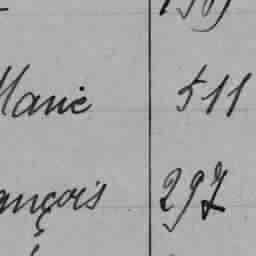 Marie 511
ançois 297